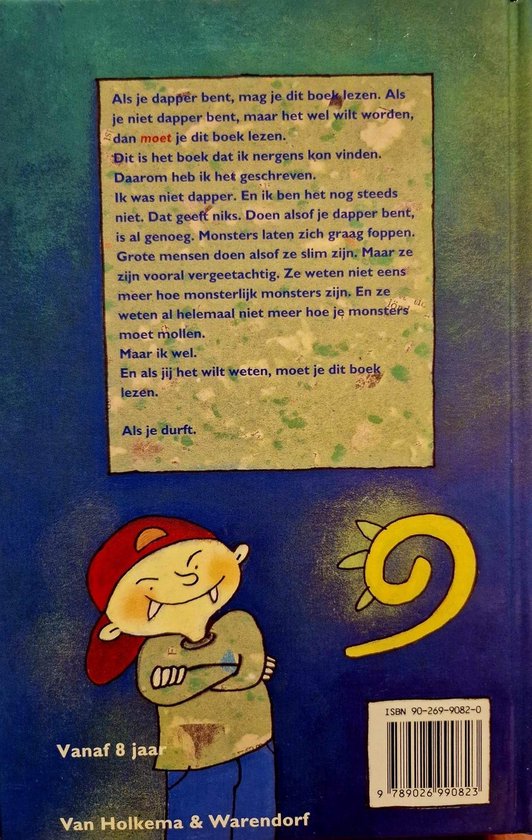 Als je dapper bent, mag je dit boek lezen. Als
je niet dapper bent, maar het wel wilt worden,
dan moet je dit boek lezen.
Dit is het boek dat ik nergens kon vinden.
Daarom heb ik het geschreven.
Ik was niet dapper. En ik ben het nog steeds
niet. Dat geeft niks. Doen alsof je dapper bent,
is al genoeg. Monsters laten zich graag foppen.
Grote mensen doen alsof ze slim zijn. Maar ze
zijn vooral vergeetachtig. Ze weten niet eens
meer hoe monsterlijk monsters zijn. En ze
weten al helemaal niet meer hoe je monsters
moet mollen.
Maar ik wel.
En als jij het wilt weten, moet je dit boek
lezen.
Als je durft.
ISBN 90-269-9082-0
9 789026 990823
Vanaf 8 jaar
Van Holkema & Warendorf